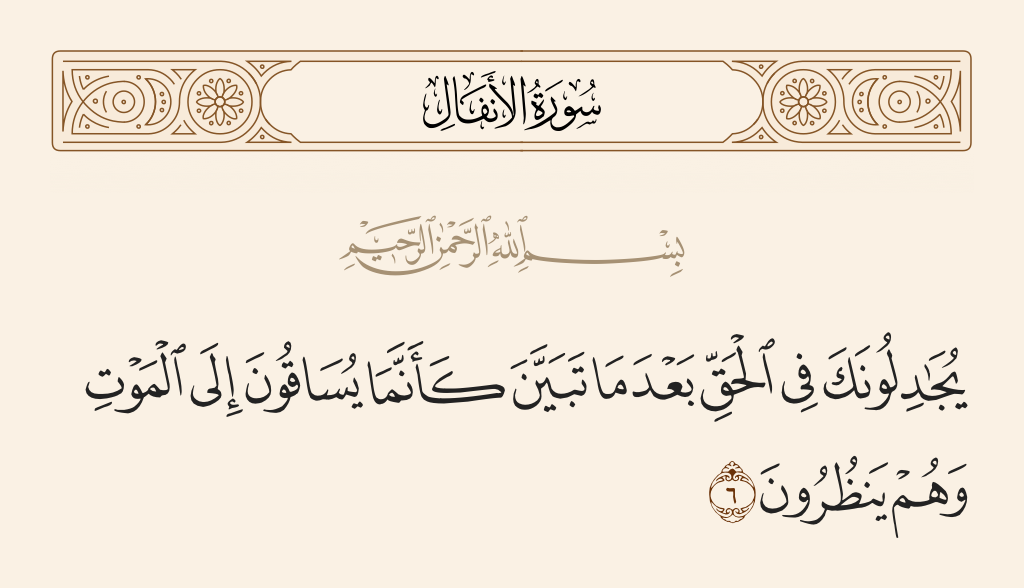 سُورَةُ الأَنفَالِ
بِسْمِ ٱللَّهِ ٱلرَّحْمَٰنِ ٱلرَّحِيمِ
يُجَٰدِلُونَكَ فِى ٱلْحَقِّ بَعْدَ مَا تَبَيَّنَ كَأَنَّمَا يُسَاقُونَ إِلَى ٱلْمَوْتِ
وَهُمْ يَنظُرُونَ ٦